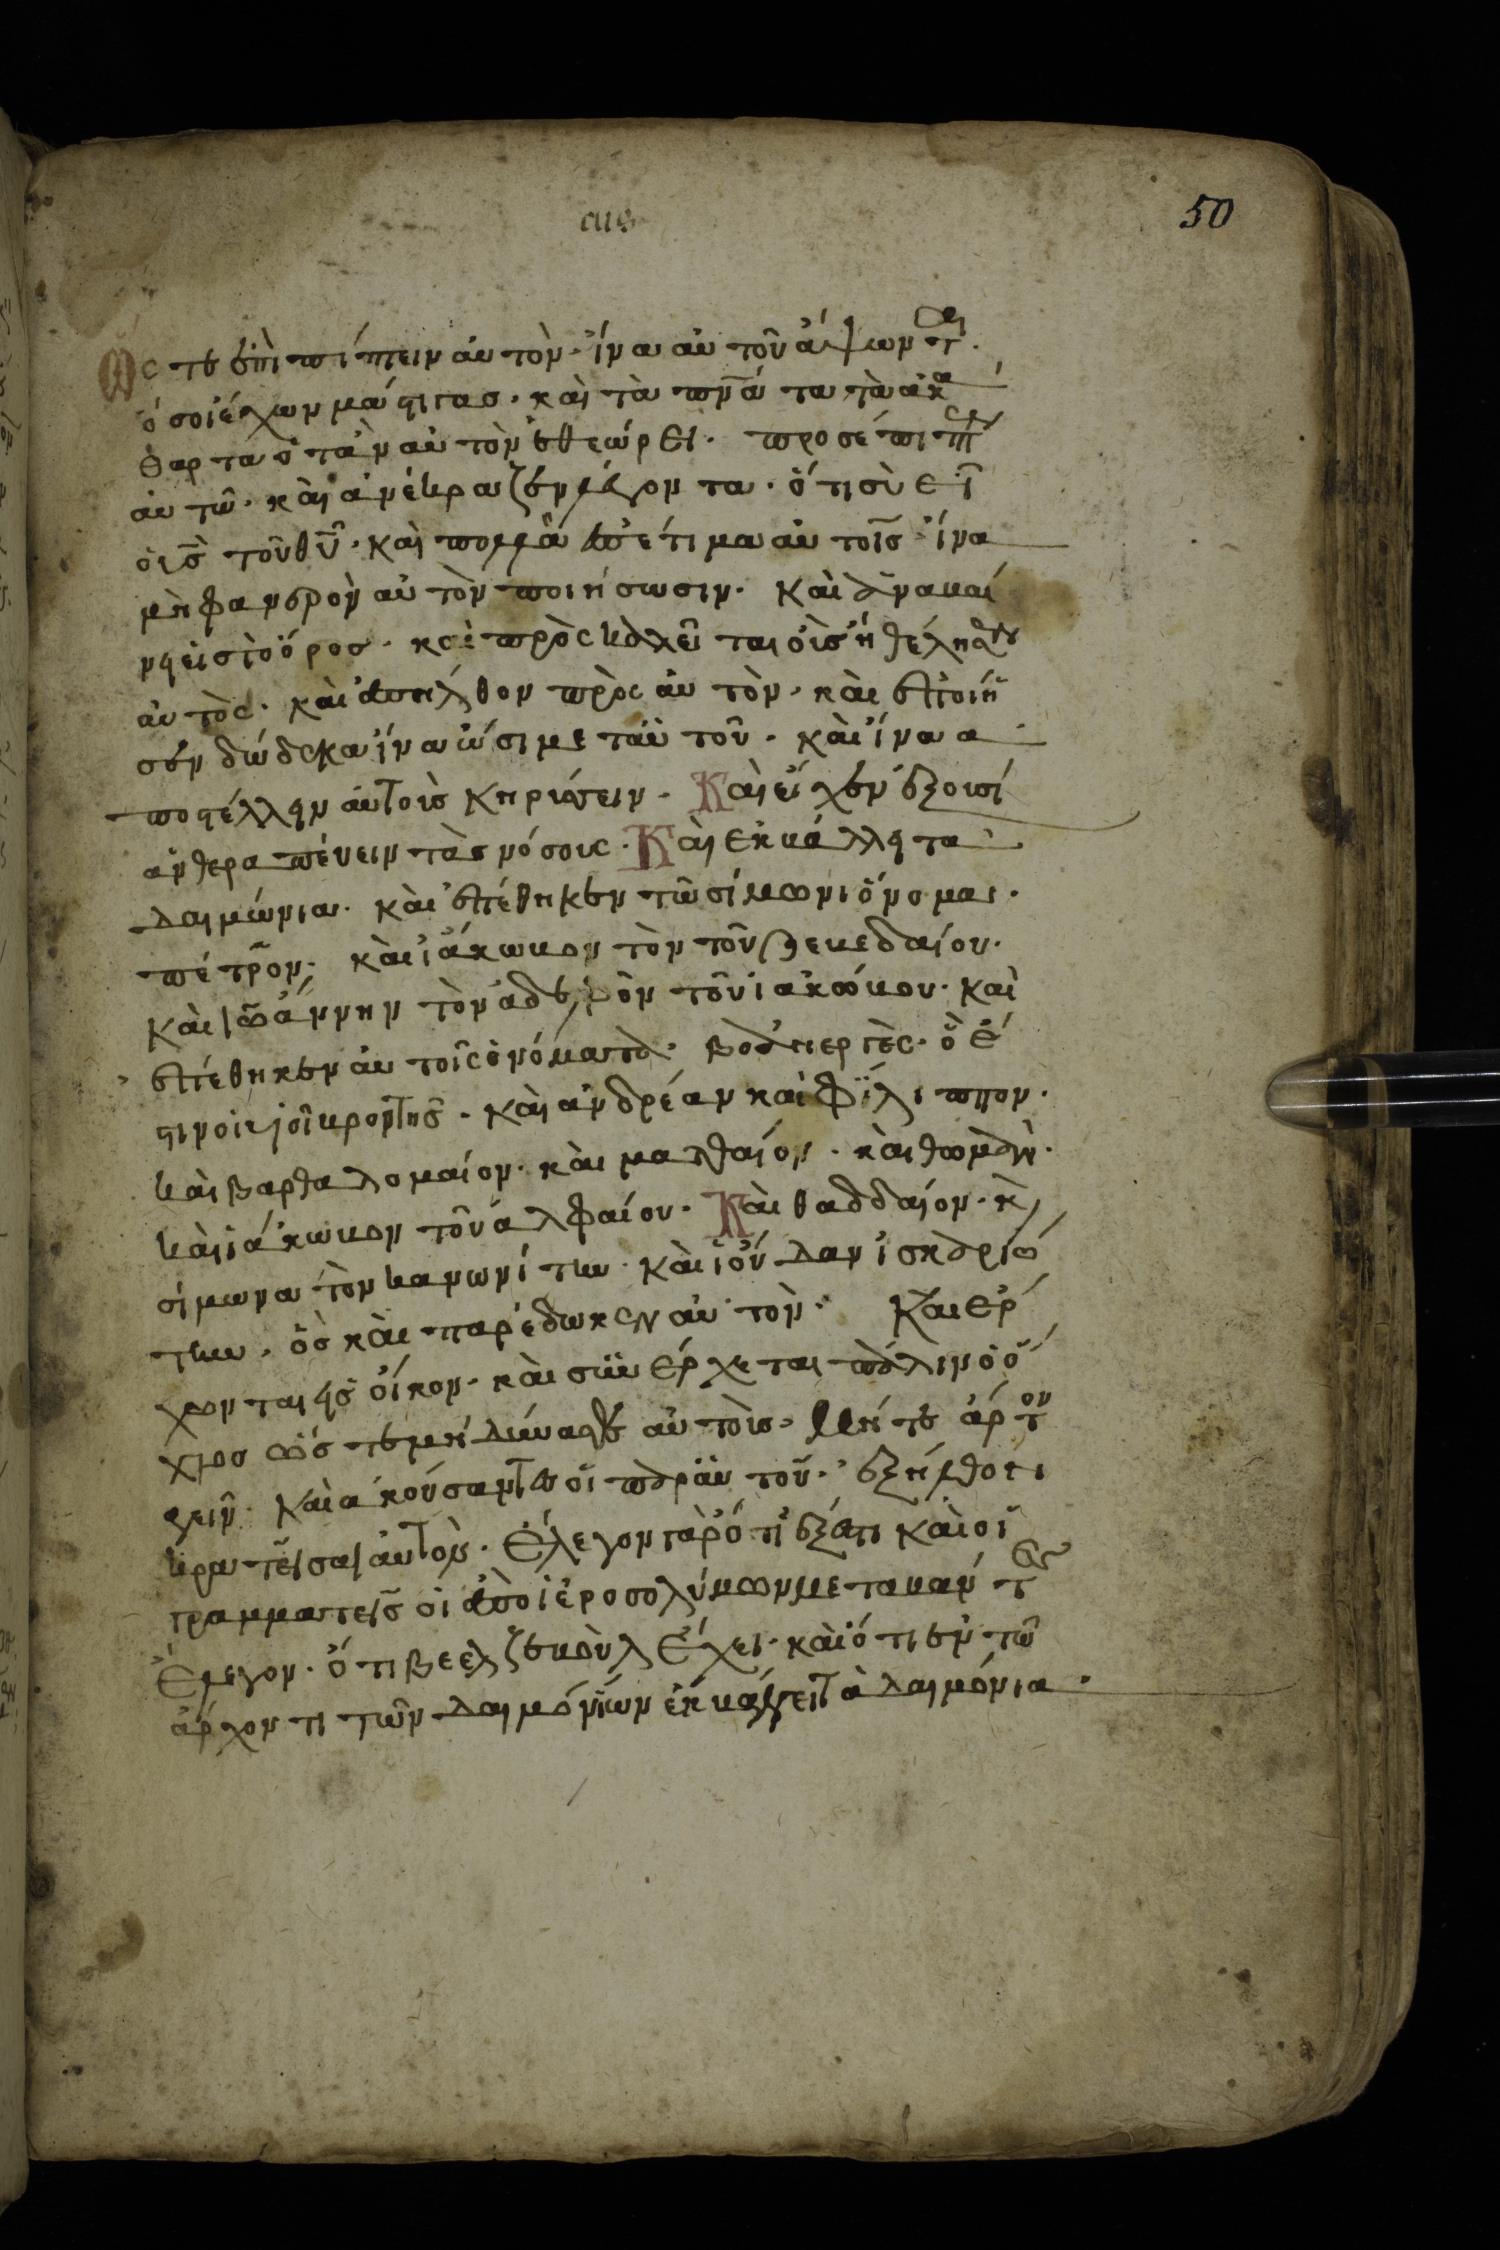 50
ὥς τε ἐπὶ πίπτειν αὐτὸν· ἵνα αὐτοῦ ἅψωνται·
ὅσοι εἶχων μάστιγας· καὶ τὰ πν̅ά τα τὰ ἀκά
θαρτα ὅταν αὐτὸν ἐθεώρει· προσέπιπτεν
αὐτῶ· καὶ ἀνέκραζεν λέγοντα· ὅτι σὺ εἶ
ὁ υἱς̅ τοῦ θυ̅· καὶ πολλὰ ἐπετίμα αὐτοῖς ἵνα
μὴ φανερὸν αὐτὸν ποιήσωσιν· καὶ ἀναβαί
νει εἰς τὸ ὄρος· καὶ προσκαλεῖται οἷς ἤθέλησεν
αὐτὸς· καὶ ἀπῆλθον πρὸς αὐτὸν· καὶ ἐποίη
σεν δώδεκα ἵνα ὦσι μετ αὐτοῦ· καὶ ἵνα α
ποστέλλην αὐτοὶς κηρύσσειν· Καὶ εἶχεν ἐξουσί
αν θεραπέυειν τὰς νόσους· Καὶ ἐκβάλλη τὰ
δαιμώνια· καὶ ἐπέθηκεν τῶ σίμωνι ὄνομαι·
πέτρον· καὶ ἰάκωβον τὸν τοῦ ζεβεδαίου·
καὶ ἰωάννην τὸν ἀδελφὸν τοῦ ἰακώβου· καὶ
ἐπέθηκεν αὐτοῖς ὀνόματα· βοανεργὲς· ὅ ἐ
στιν οἱ υἱοὶ βροντῆς· καὶ ἀνδρέαν καὶ φίλιππον·
καὶ βαρθαλομαίον· καὶ ματθαίον· καὶ θωμὰν·
καὶ ἰάκωβον τοῦ ἀλφαίου· Καὶ θαδδαίον· κὶ
σίμωνα τὸν κανωνίτην· καὶ ἰούδαν ἰσκαριώ
την· ὃς καὶ παρέδωκεν αὐτὸν· Καὶ ἔρ
χωνται εἰς οἶκον· καὶ συνέρχεται πάλιν ὁ ὄ
χλος ὥς τε μὴ δύνασθε αὐτοὶς· μήτε ἄρτον
φαγειν· καὶ ἀκούσαντες οἱ παρ αὐτοῦ· ἐξήλθον
κρατεῖσαι αὐτὸν· ἔλεγον γὰρ ὅτι ἐξέστη καὶ οἱ
γραμματεῖς οἱ ἀπο ἱεροσολύμων μεταβάντες
ἔλεγον· ὅτι βεελζεβοὺλ ἔχει· καὶ ὅτι ἐν τῶ
ἄρχοντι τῶν δαιμόνίων ἐκβάλλει τὰ δαιμόνια·